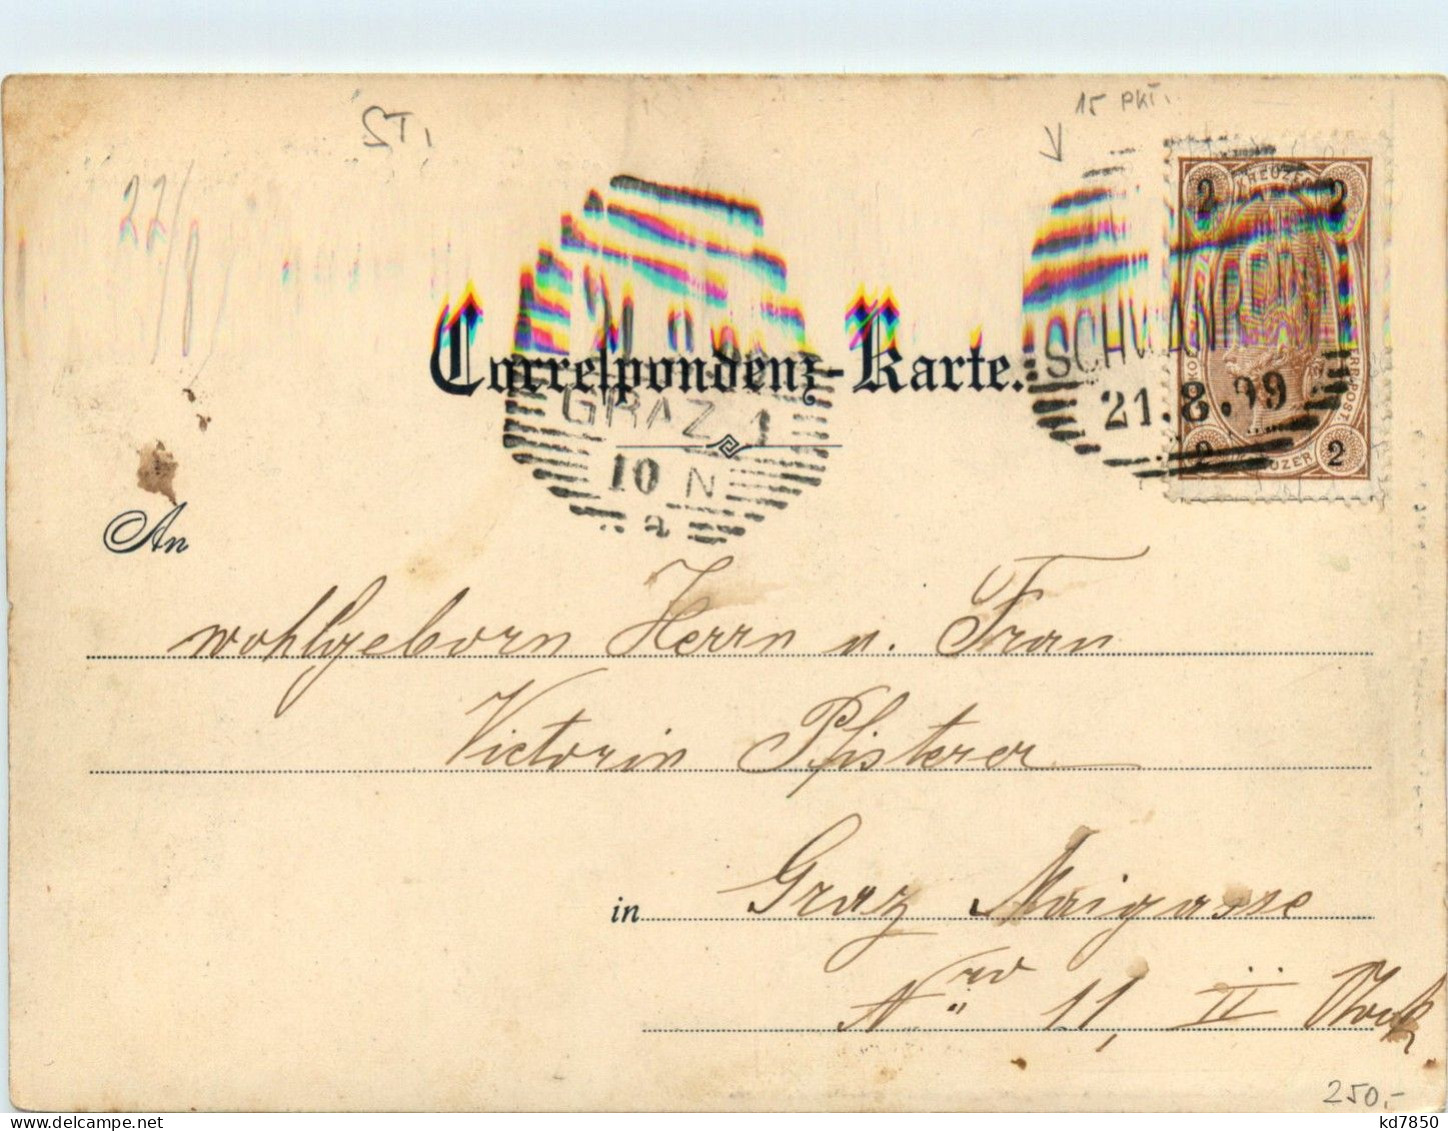 ST.
15 PKT.
22/8
2 KREUZER 2
Correspondenz-Karte.
21.8.99
GRAZ 1
10 N
a
SCHWANBERG
21.8.99
2 KREUZER 2
An
wohlgeborn Herrn u. Frau
Victorin Pfisterer
in Graz Maigasse
Nro 11, II Stock
250,-
kd7850